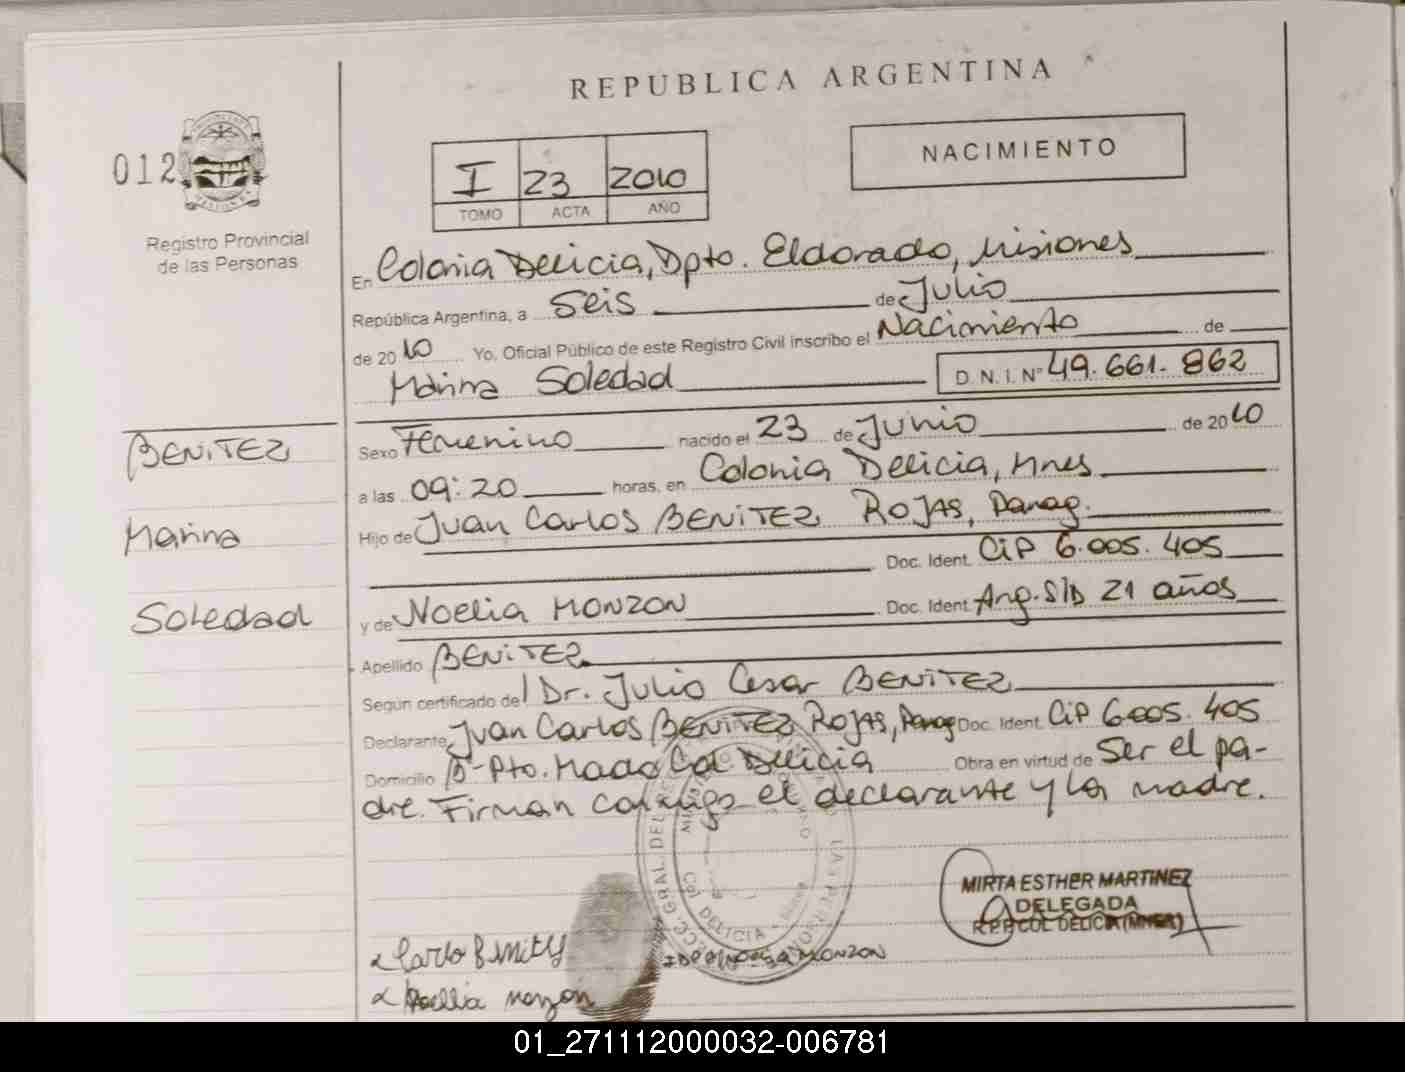 REPUBLICA ARGENTINA
012
Registro Provincial
de las Personas
I 23 2010
TOMO ACTA AÑO
NACIMIENTO
En Colonia Delicia, Dpto. Eldorado, Misiones
República Argentina, a Seis de Julio
de 2010 Yo, Oficial Público de este Registro Civil inscribo el Nacimiento de
Marina Soledad D. N. I. Nº 49.661.862
BENITEZ
Marina
Soledad
Sexo Femenino nacido el 23 de Junio de 2010
a las 09:20 horas, en Colonia Delicia, Mnes
Hijo de Juan Carlos BENITEZ ROJAS, Parag.
Doc. Ident. CIP 6.005.405
y de Noelia MONZON Doc. Ident. Arg. S/D 21 años
Apellido BENITEZ
Según certificado del Dr. Julio Cesar BENITEZ
Declarante Juan Carlos BENITEZ ROJAS, Parag Doc. Ident. CIP 6.005.405
Domicilio Bº Pto. Mado Col Delicia Obra en virtud de Ser el pa-
dre. Firman conmigo el declarante y la madre.
MIRTA ESTHER MARTINEZ
DELEGADA
R.P.P COL DELICIA (MNES)
Carlo Benitez
MONZON
Noelia monzon
01_271112000032-006781